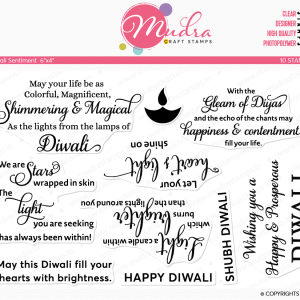 Mudra
CRAFT STAMPS
CLEAR
DESIGNER
HIGH QUALITY
PHOTOPOLYMER
Sentiment 6"x4"
10 STAM
May your life be as
Colorful, Magnificent,
Shimmering & Magical
As the lights from the lamps of
Diwali
With the
Gleam of Diyas
and the echo of the chants may
happiness & contentment
fill your life.
We are
Stars
wrapped in skin
The
light
you are seeking
has always been within!
Let your
heart's light
shine on
Light
a candle within
which
burns
brighter
than the
May this Diwali fill your
hearts with brightness.
HAPPY DIWALI
SHUBH DIWALI
Wishing you a
Happy & Prosperous
DIWALI
© COPYRIGHTS